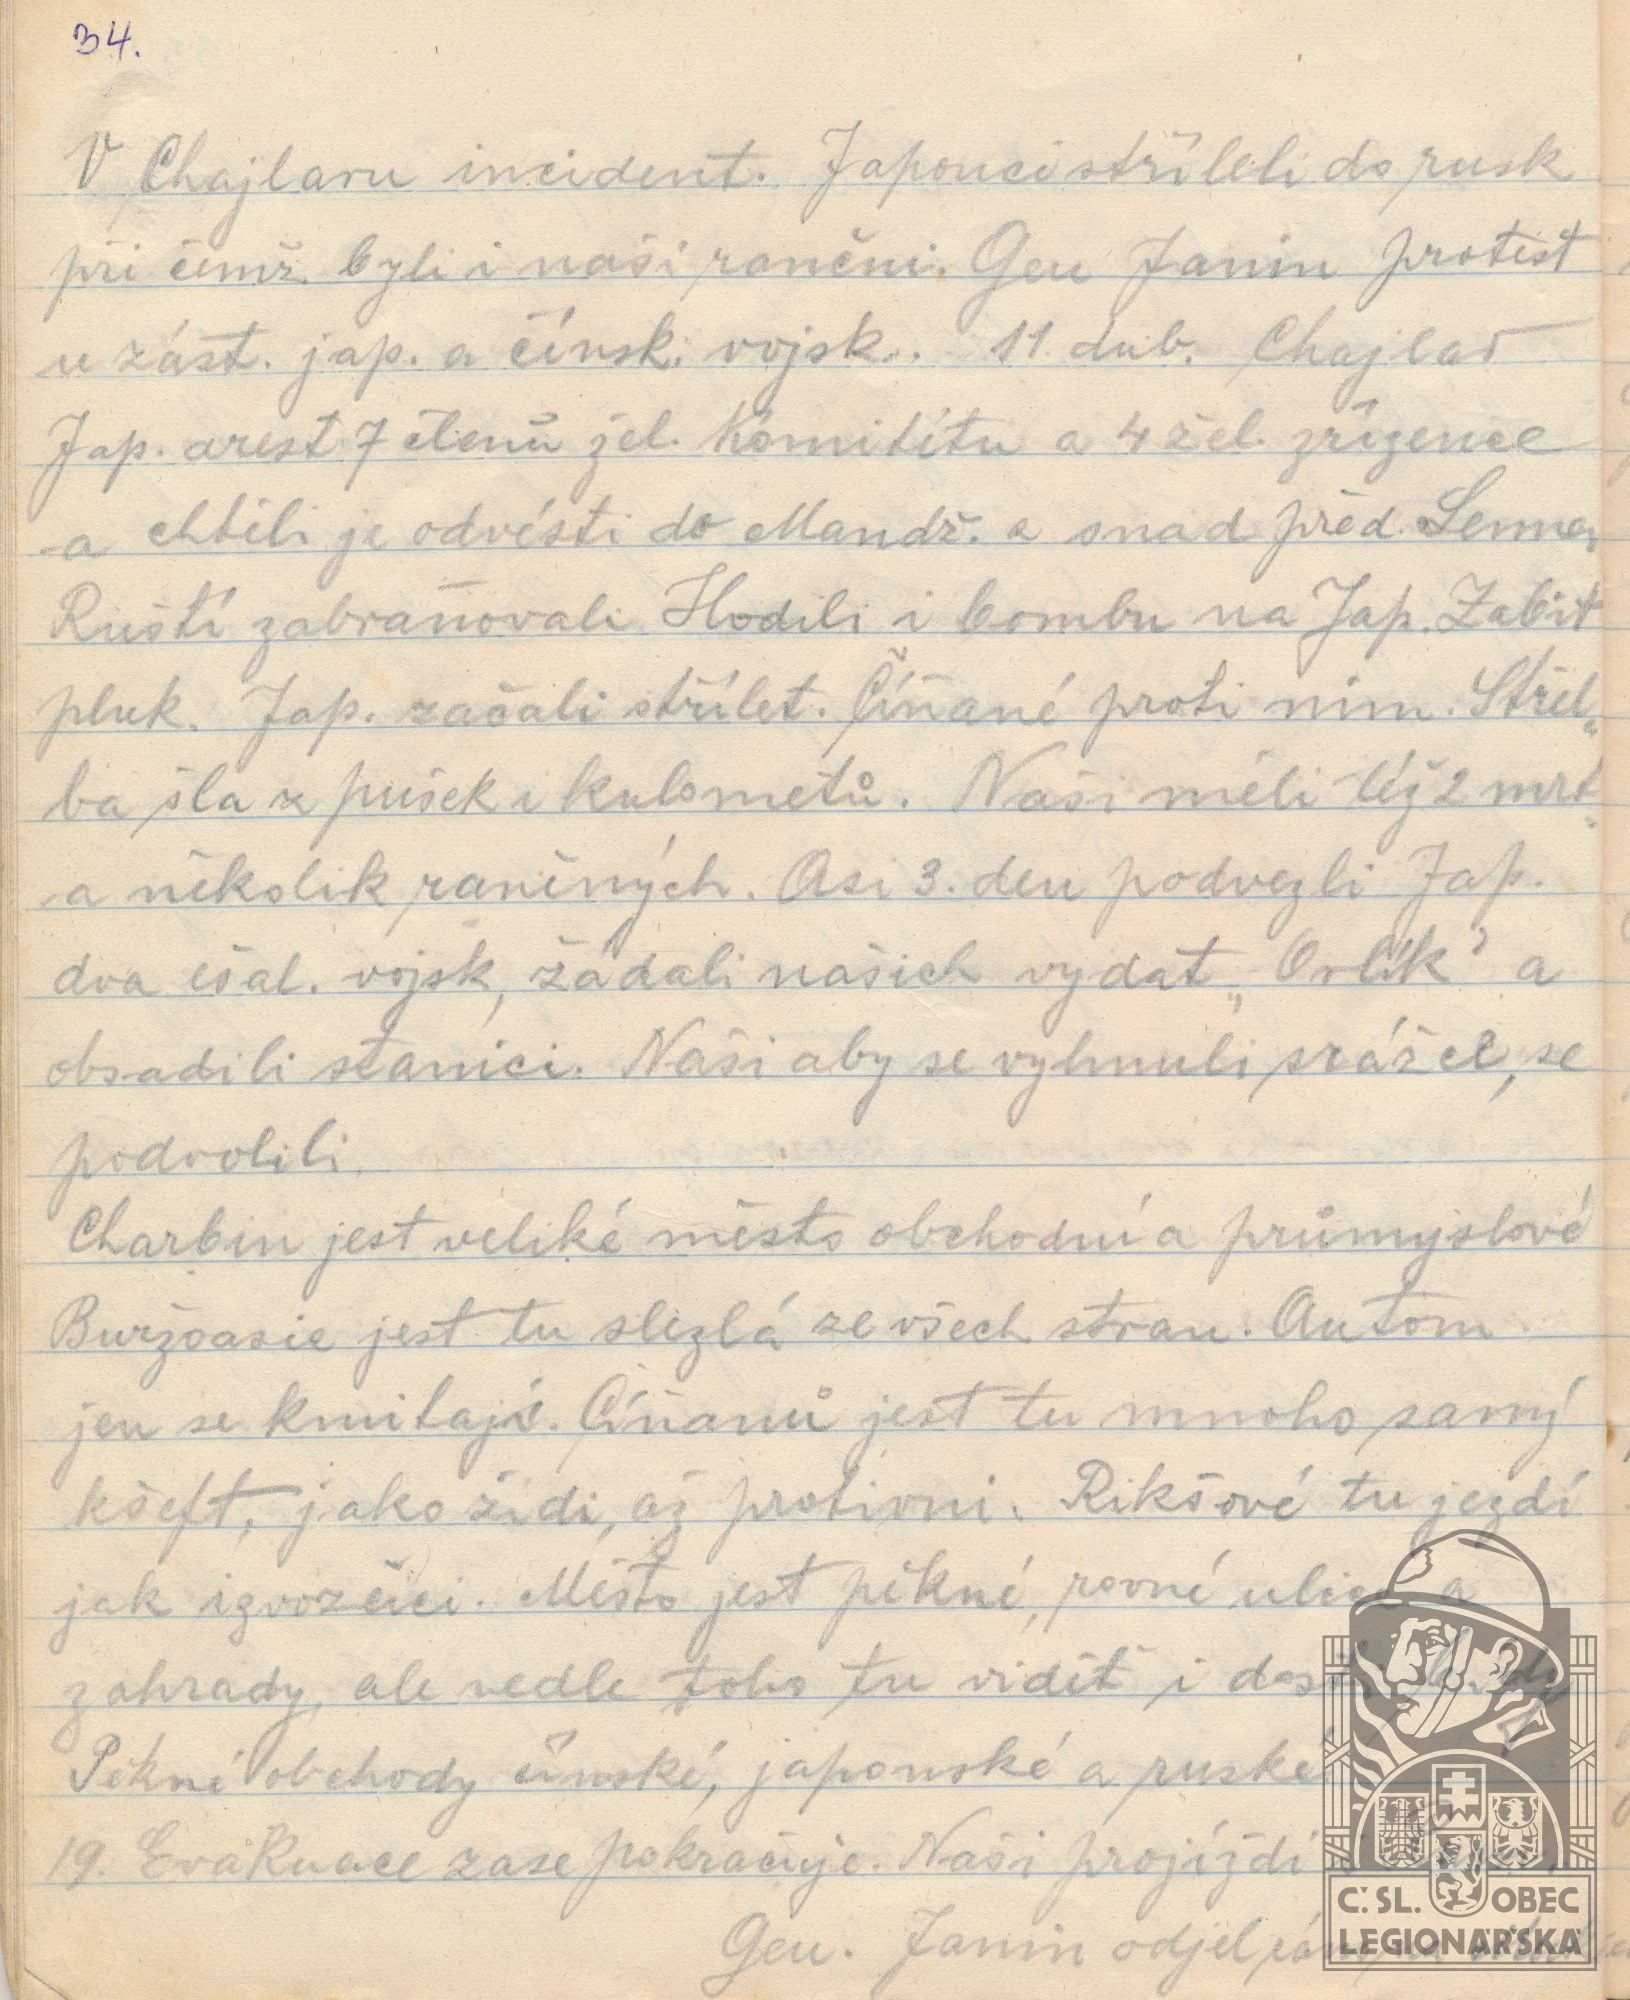 34.
V Chajlaru incident. Japonci stříleli do rusk
při čemž byli i naši raněni. Gen Janin protest
u zást. jap. a čínsk. vojsk. 11 dub. Chajlar
Jap. arest 7 členů žel. Komitétu a 4 žel. zřízence
a chtěli je odvésti do Mandž. a snad před. Semen
Ruští zabraňovali Hodili i bombu na Jap. Zabit
pluk. Jap. začali střílet. Číňané proti nim. Střel„
ba šla z pušek i kulometů. Naši měli též 2 mrt„
a několik raněných. Asi 3. den podvezli Jap.
dva ešal. vojsk, žádali našich vydat „Orlík" a
obsadili stanici. Naši aby se vyhnuli srážce, se
podvolili.
Charbin jest veliké město obchodní a průmyslové
Buržoasie jest tu slezlá ze všech stran. Autom
jen se kmitají. Číňanů jest tu mnoho samý
kšeft, jako židi, až protivni. Rikšové tu jezdí
jak izvozčici. Město jest pěkné, rovné ulice a
zahrady, ale vedle toho tu vidět i dost
Pěkné obchody čínské, japonské a ruské
19. Evakuace zase pokračuje. Naši projíždí
Gen. Janin odjel
Č. SL. OBEC
LEGIONÁŘSKÁ